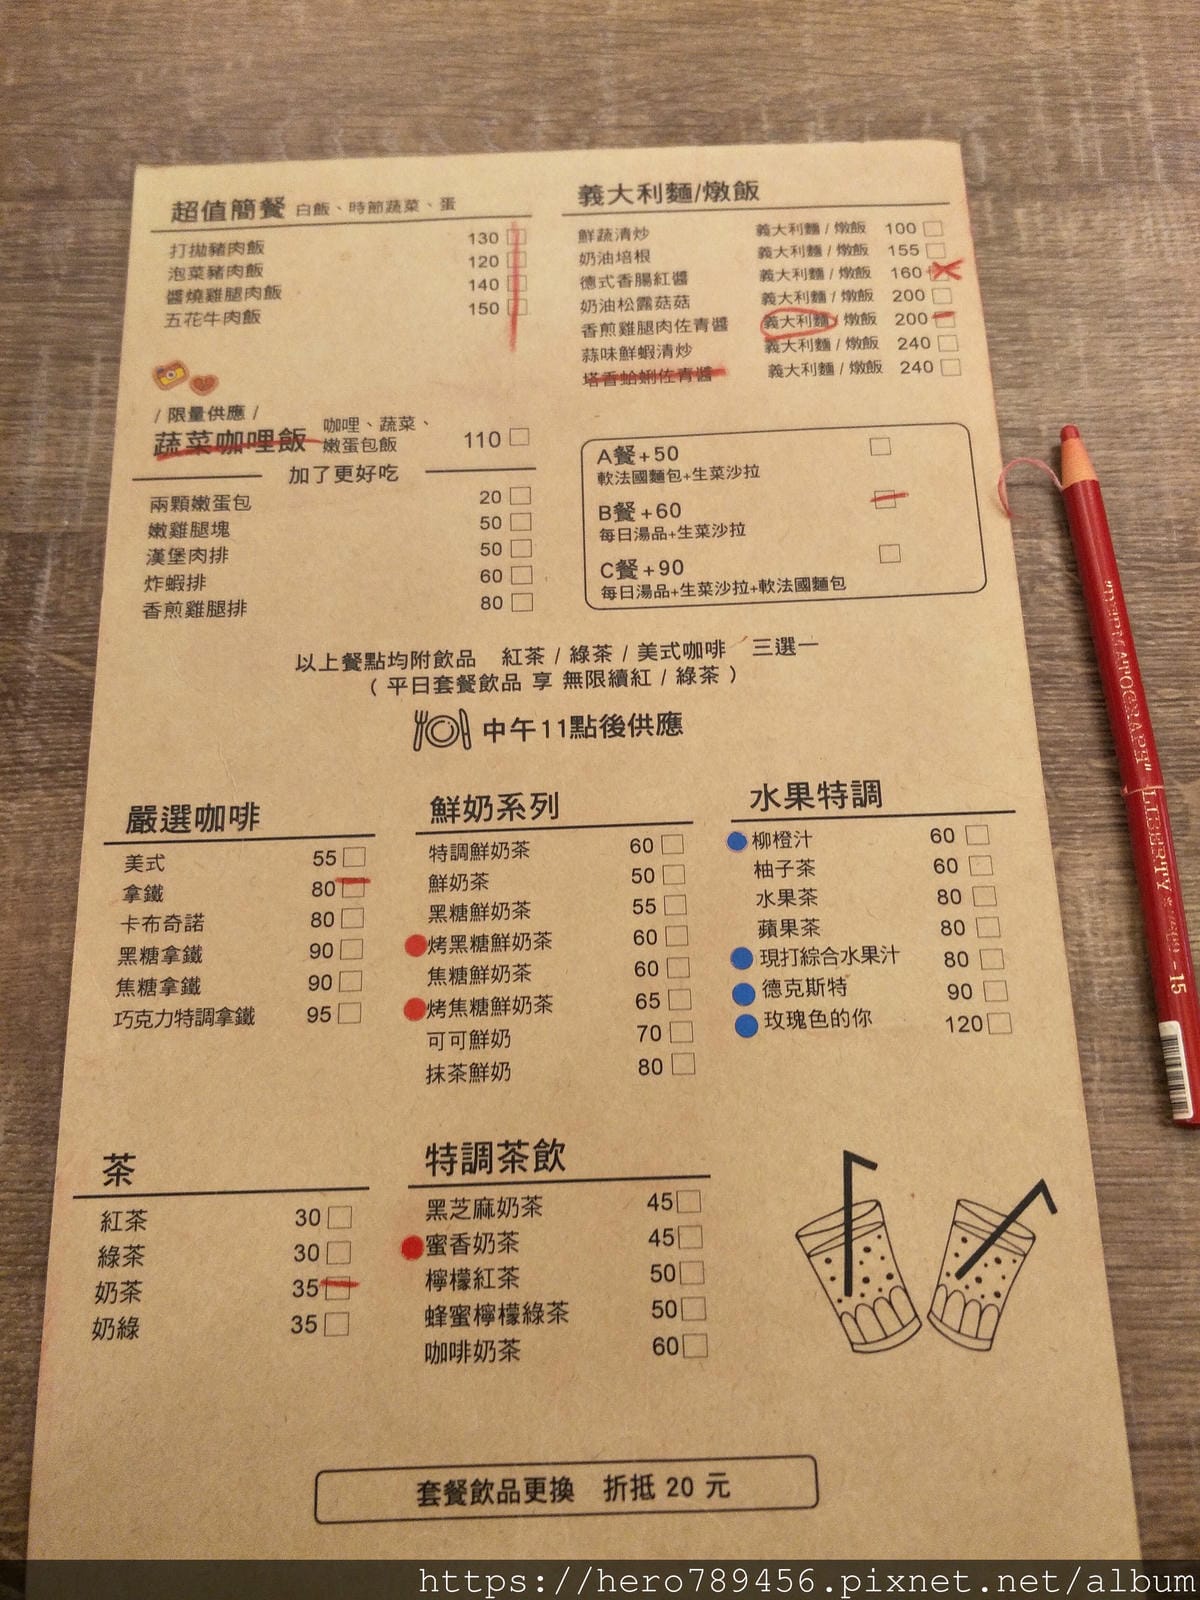 超值簡餐 白飯、時節蔬菜、蛋
打拋豬肉飯 130
泡菜豬肉飯 120
醬燒雞腿肉飯 140
五花牛肉飯 150
/ 限量供應 /
蔬菜咖哩飯 咖哩、蔬菜、嫩蛋包飯 110
加了更好吃
兩顆嫩蛋包 20
嫩雞腿塊 50
漢堡肉排 50
炸蝦排 60
香煎雞腿排 80
義大利麵/燉飯
鮮蔬清炒 義大利麵 / 燉飯 100
奶油培根 義大利麵 / 燉飯 155
德式香腸紅醬 義大利麵 / 燉飯 160
奶油松露菇菇 義大利麵 / 燉飯 200
香煎雞腿肉佐青醬 義大利麵 / 燉飯 200
蒜味鮮蝦清炒 義大利麵 / 燉飯 240
塔香蛤蜊佐青醬 義大利麵 / 燉飯 240
A餐+50
軟法國麵包+生菜沙拉
B餐+60
每日湯品+生菜沙拉
C餐+90
每日湯品+生菜沙拉+軟法國麵包
以上餐點均附飲品 紅茶 / 綠茶 / 美式咖啡 三選一
( 平日套餐飲品 享 無限續紅 / 綠茶 )
中午11點後供應
嚴選咖啡
美式 55
拿鐵 80
卡布奇諾 80
黑糖拿鐵 90
焦糖拿鐵 90
巧克力特調拿鐵 95
鮮奶系列
特調鮮奶茶 60
鮮奶茶 50
黑糖鮮奶茶 55
烤黑糖鮮奶茶 60
焦糖鮮奶茶 60
烤焦糖鮮奶茶 65
可可鮮奶 70
抹茶鮮奶 80
水果特調
柳橙汁 60
柚子茶 60
水果茶 80
蘋果茶 80
現打綜合水果汁 80
德克斯特 90
玫瑰色的你 120
茶
紅茶 30
綠茶 30
奶茶 35
奶綠 35
特調茶飲
黑芝麻奶茶 45
蜜香奶茶 45
檸檬紅茶 50
蜂蜜檸檬綠茶 50
咖啡奶茶 60
套餐飲品更換 折抵 20 元
"DERMATOGRAPH" LIBERTY
https://hero789456.pixnet.net/album